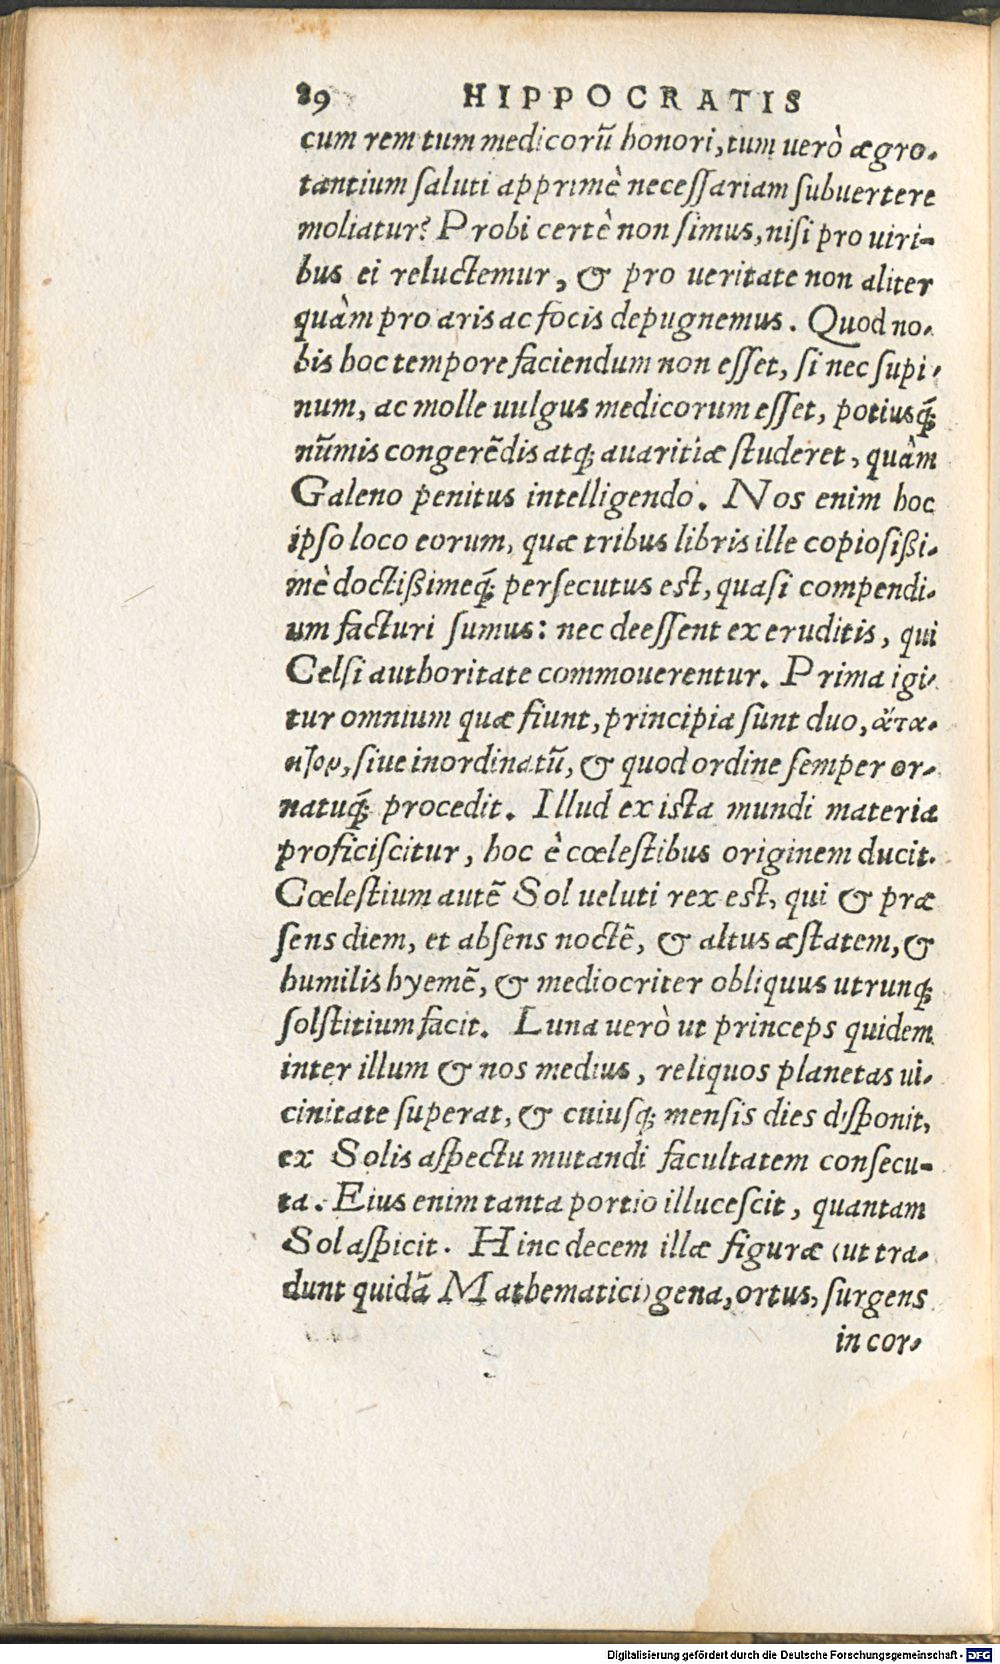 89 HIPPOCRATIS
cum rem tum medicorũ honori, tum uerò ægro-
tantium saluti apprimè necessariam subuertere
moliatur? Probi certè non simus, nisi pro uiri-
bus ei reluctemur, & pro ueritate non aliter
quàm pro aris ac focis depugnemus. Quod no-
bis hoc tempore faciendum non esset, si nec supi-
num, ac molle uulgus medicorum esset, potiusq́;
nũmis congerẽdis atq; auaritiæ studeret, quàm
Galeno penitus intelligendo. Nos enim hoc
ipso loco eorum, quæ tribus libris ille copiosißi-
mè doctißimeq́; persecutus est, quasi compendi-
um facturi sumus: nec deessent ex eruditis, qui
Celsi authoritate commouerentur. Prima igi-
tur omnium quæ fiunt, principia sunt duo, ἄτα-
κτον, siue inordinatũ, & quod ordine semper or-
natuq́; procedit. Illud ex ista mundi materia
proficiscitur, hoc è cœlestibus originem ducit.
Cœlestium autẽ Sol ueluti rex est, qui & præ
sens diem, et absens noctẽ, & altus æstatem, &
humilis hyemẽ, & mediocriter obliquus utrunq;
solstitium facit. Luna uerò ut princeps quidem
inter illum & nos medius, reliquos planetas ui-
cinitate superat, & cuiusq; mensis dies disponit,
ex Solis aspectu mutandi facultatem consecu-
ta. Eius enim tanta portio illucescit, quantam
Sol aspicit. Hinc decem illæ figuræ (ut tra-
dunt quidã Mathematici) gena, ortus, surgens
in cor-
Digitalisierung gefördert durch die Deutsche Forschungsgemeinschaft - DFG